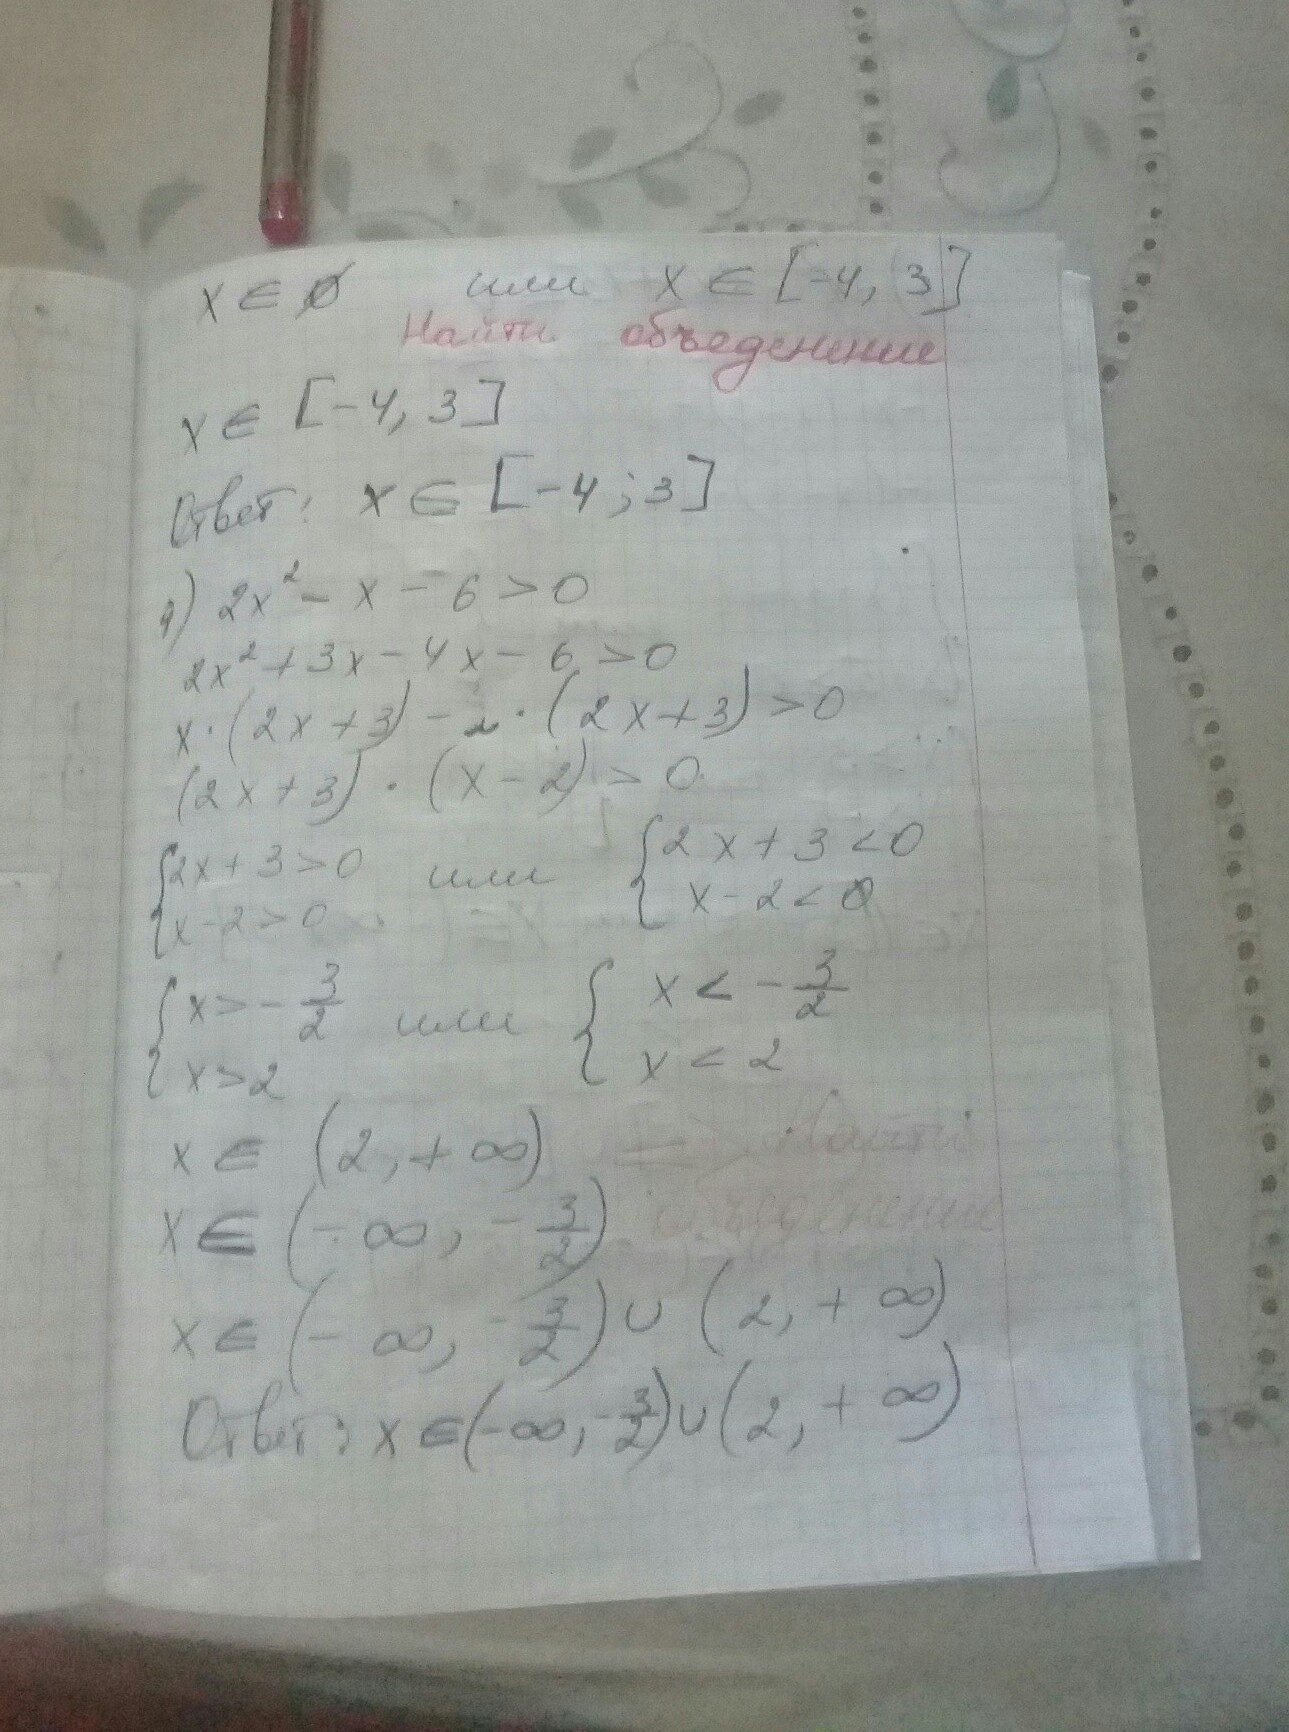 x ∈ ∅ или x ∈ [-4, 3]
Найти объеденение
x ∈ [-4, 3]
Ответ: x ∈ [-4; 3]
g) 2x² - x - 6 > 0
2x² + 3x - 4x - 6 > 0
x · (2x + 3) - 2 · (2x + 3) > 0
(2x + 3) · (x - 2) > 0
{2x + 3 > 0 или {2x + 3 < 0
{x - 2 > 0 {x - 2 < 0
{x > - 3/2 или {x < - 3/2
{x > 2 {x < 2
x ∈ (2, + ∞) => Найти
x ∈ (- ∞, - 3/2) объеденение
x ∈ (- ∞, - 3/2) ∪ (2, + ∞)
Ответ: x ∈ (-∞, - 3/2) ∪ (2, + ∞)